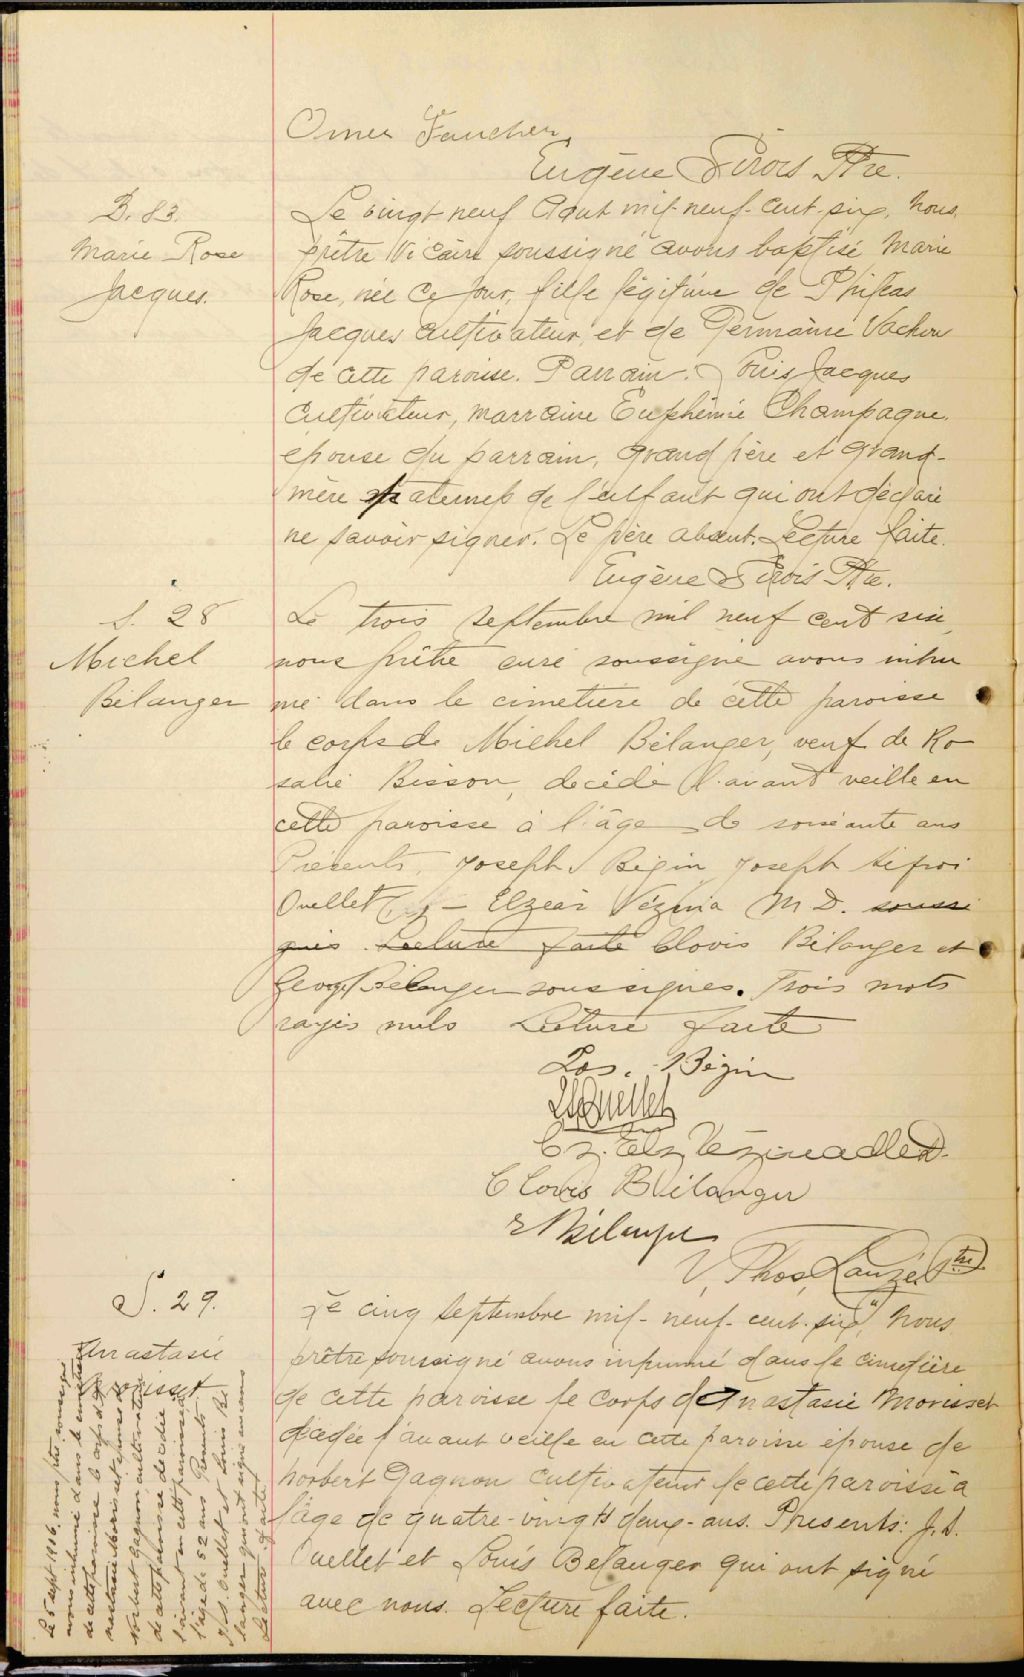 Omer Faucher
Eugène Sirois Ptre.
B. 83.
Marie Rose
Jacques.
Le vingt neuf Aout mil-neuf-cent-six, nous,
prêtre Vicaire soussigné avons baptisé Marie
Rose, née ce jour, fille légitime de Philéas
Jacques cultivateur, et de Germaine Vachon
de cette paroisse. Parrain. Louis Jacques
cultivateur, marraine Euphémie Champagne.
épouse du parrain, grand père et grand-
mère paternels de l'enfant qui ont déclaré
ne savoir signer. Le père absent. Lecture faite.
Eugène Sirois Ptre.
S. 28
Michel
Bélanger
Le trois septembre mil neuf cent six,
nous prêtre curé soussigné avons inhu
mé dans le cimetière de cette paroisse
le corps de Michel Bélanger, veuf de Ro
salie Bisson, décédé l'avant veille en
cette paroisse à l'âge de soixante ans
Présents, Joseph Bégin, Joseph
Ouellet – Elzéar Vézina M.D. soussi
gnés Lecture faite Clovis Bélanger et
Bélanger soussignés. Trois mots
rayés nuls Lecture faite
Jos. Bégin
Ouellet
Elz. Vézina
Clovis Bélanger
Bélanger
V. Thos. Lauzé Ptre
S. 29.
Anastasie
Morisset
Le cinq septembre mil-neuf-cent-six, nous
prêtre soussigné avons inhumé dans le cimetière
de cette paroisse le corps d'Anastasie Morisset
décédée l'avant veille en cette paroisse épouse de
Norbert Gagnon cultivateur de cette paroisse à
l'âge de quatre-vingt deux-ans. Présents: J. S.
Ouellet et Louis Belanger qui ont signé
avec nous. Lecture faite.
Le 5 sept 1906, nous prêtre soussigné
avons inhumé dans le cimetière
de cette paroisse le corps d'A
nastasie Morisset épouse de
Norbert Gagnon, cultivateur
de cette paroisse décédée
l'avant en cette paroisse à
l'âge de 82 ans Présents
J. S. Ouellet et Louis Bé
langer qui ont signé avec nous
Lecture faite